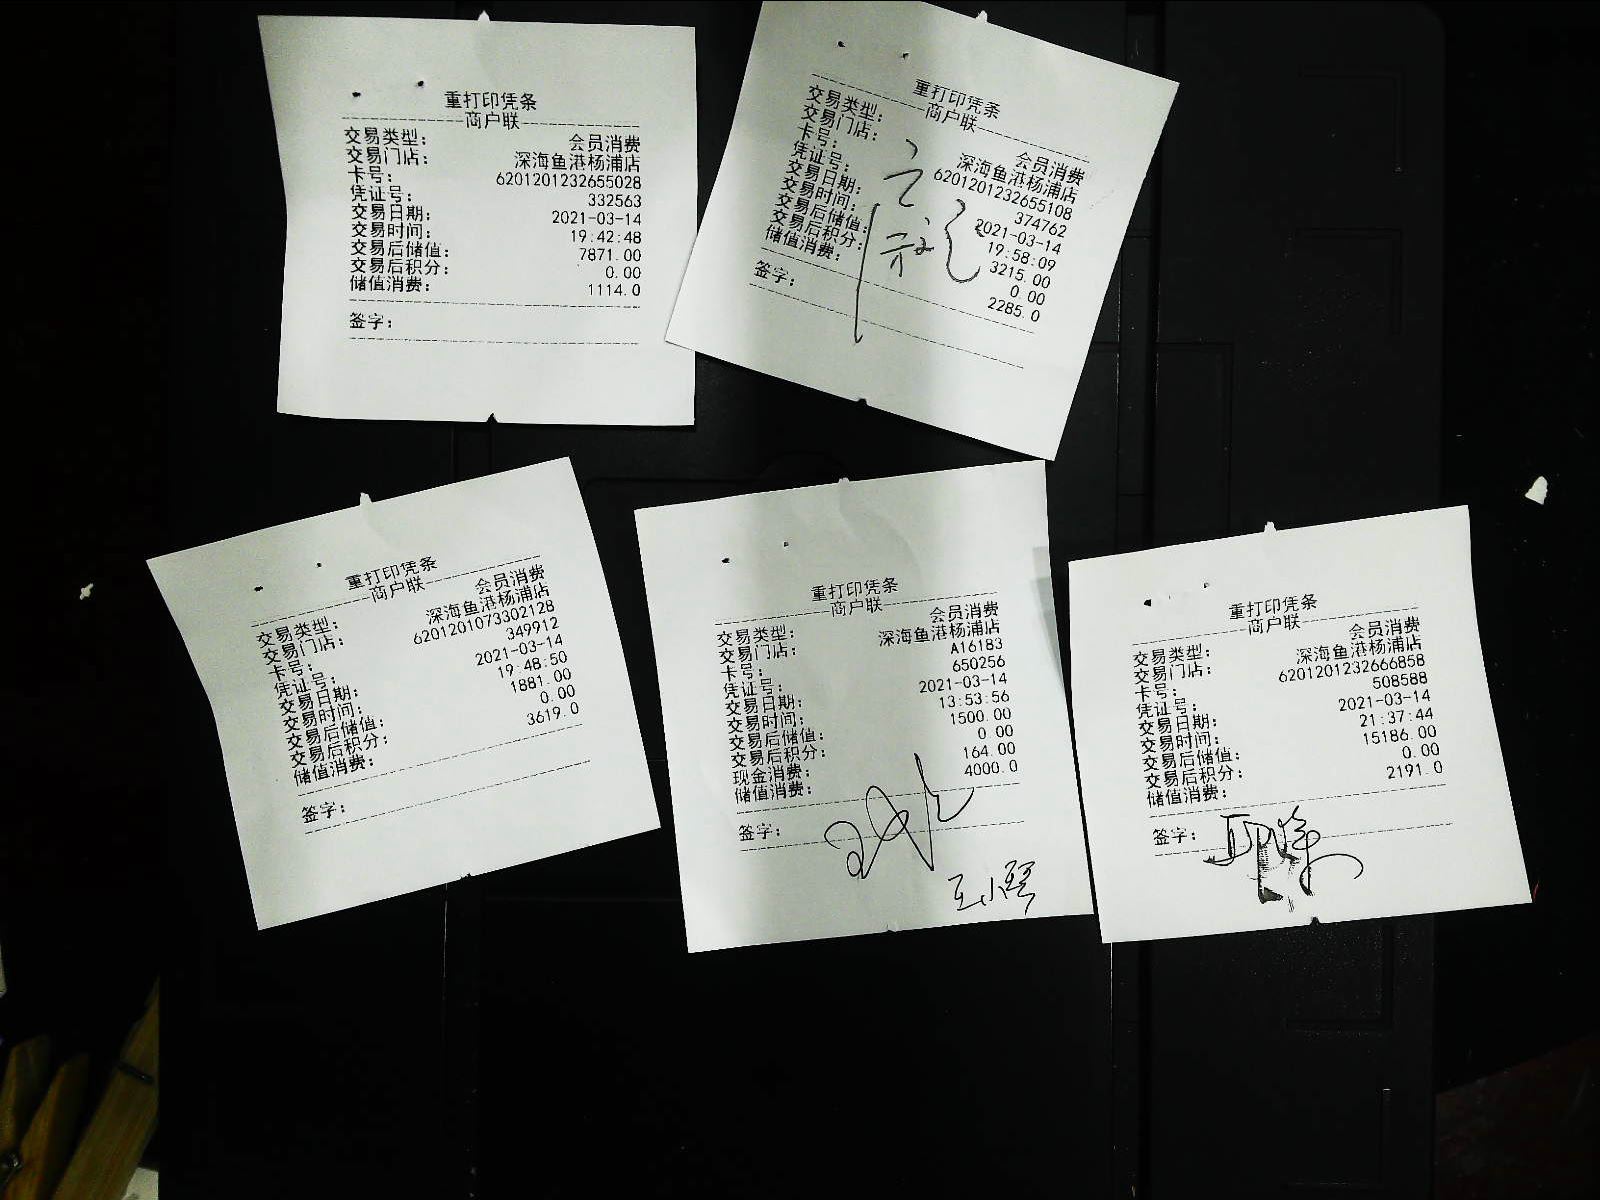 重打印凭条
商户联
交易类型： 会员消费
交易门店： 深海鱼港杨浦店
卡号： 6201201232655028
凭证号： 332563
交易日期： 2021-03-14
交易时间： 19:42:48
交易后储值： 7871.00
交易后积分： 0.00
储值消费： 1114.0
签字：
重打印凭条
商户联
交易类型： 会员消费
交易门店： 深海鱼港杨浦店
卡号： 6201201232655108
凭证号： 374762
交易日期： 2021-03-14
交易时间： 19:58:09
交易后储值： 3215.00
交易后积分： 0.00
储值消费： 2285.0
签字：
重打印凭条
商户联
交易类型： 会员消费
交易门店： 深海鱼港杨浦店
卡号： 6201201073302128
凭证号： 349912
交易日期： 2021-03-14
交易时间： 19:48:50
交易后储值： 1881.00
交易后积分： 0.00
储值消费： 3619.0
签字：
重打印凭条
商户联
交易类型： 会员消费
交易门店： 深海鱼港杨浦店
卡号： A16183
凭证号： 650256
交易日期： 2021-03-14
交易时间： 13:53:56
交易后储值： 1500.00
交易后积分： 0.00
现金消费： 164.00
储值消费： 4000.0
签字：
王小琴
重打印凭条
商户联
交易类型： 会员消费
交易门店： 深海鱼港杨浦店
卡号： 6201201232666858
凭证号： 508588
交易日期： 2021-03-14
交易时间： 21:37:44
交易后储值： 15186.00
交易后积分： 0.00
储值消费： 2191.0
签字：